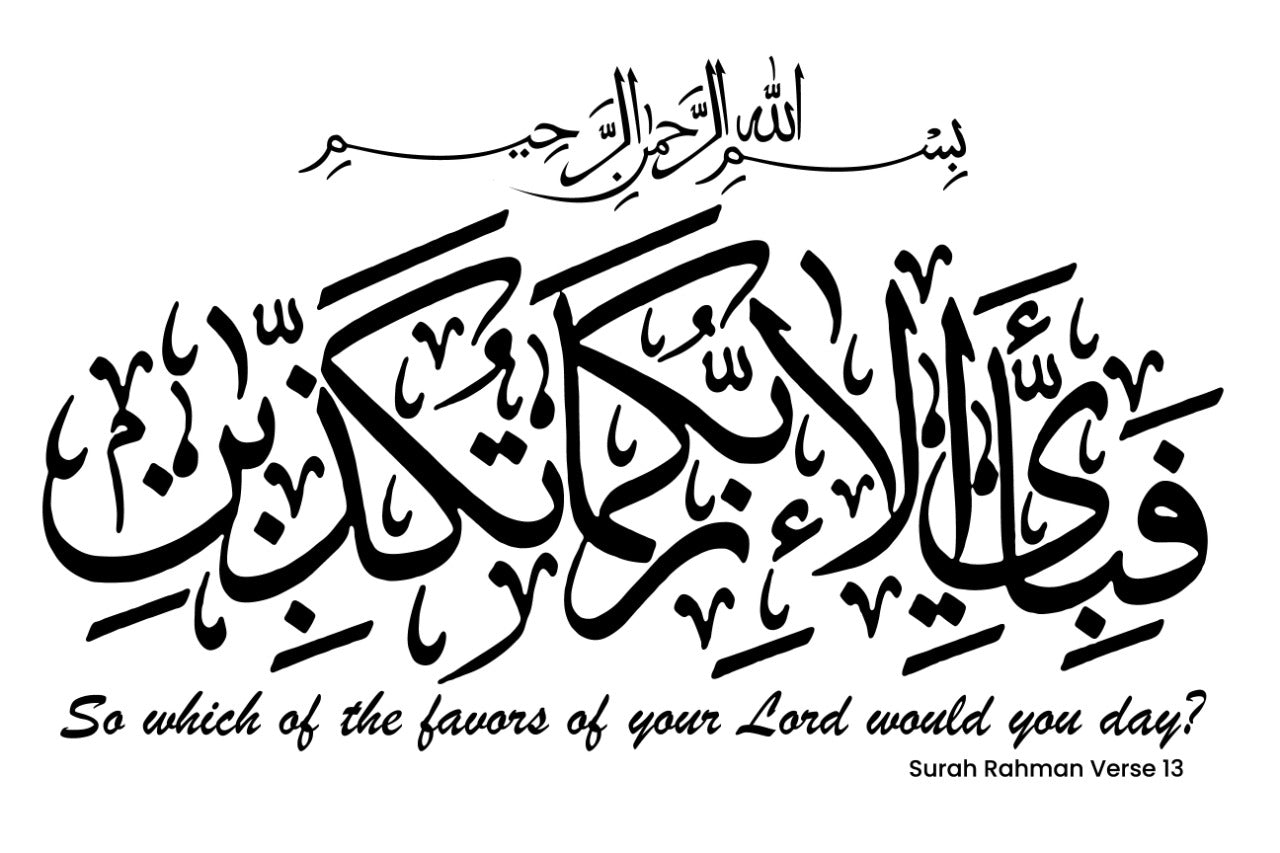 بِسْمِ اللهِ الرَّحْمٰنِ الرَّحِيمِ
فَبِأَيِّ آلَاءِ رَبِّكُمَا تُكَذِّبَانِ
So which of the favors of your Lord would you day?
Surah Rahman Verse 13